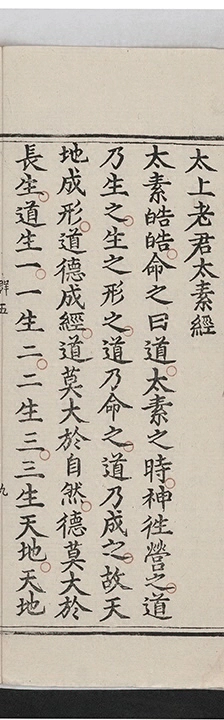 太上老君太素經
太素皓皓。命之曰道。太素之時。神徃營之。道
乃生之。生之形之。道乃命之。道乃成之。故天
地成形。道德成經。道莫大於自然。德莫大於
長生。道生一。一生二。二生三。三生天地。天地
群五
九